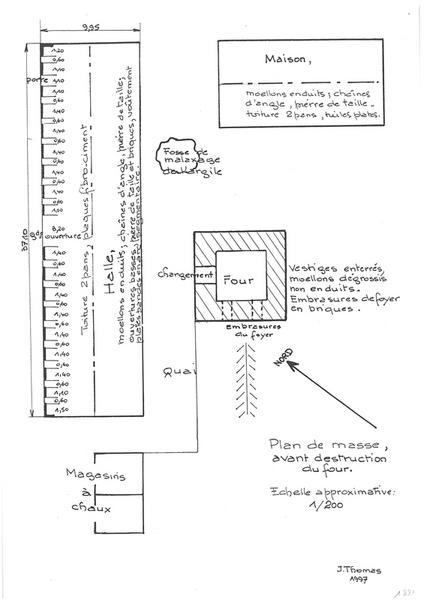 9,95
37,10
porte
1,20
0,60
1,10
0,60
1,10
0,60
1,10
0,60
1,10
0,60
1,10
0,60
1,10
0,60
1,10
8,20
gde ouverture
1,40
0,60
1,40
0,60
1,40
0,60
1,40
0,60
1,40
0,60
1,40
0,60
1,10
0,60
1,50
Toiture 2 pans, plaques fibro-ciment
Halle,
moellons enduits, chaînes d'angle, pierre de taille;
ouvertures basses, pierre de taille et briques, voûtement
Maison,
moellons enduits; chaînes
d'angle, pierre de taille.
toiture 2 pans, tuiles plates.
Fosse de
malaxage
de l'argile
chargement
Four
Vestiges enterrés,
moellons dégrossis
non enduits.
Embrasures de foyer
en briques.
embrasures
du foyer
Quai
NORD
Plan de masse,
avant destruction
du four.
Echelle approximative:
1/200
Magasins
à
chaux
J.Thomas
1997